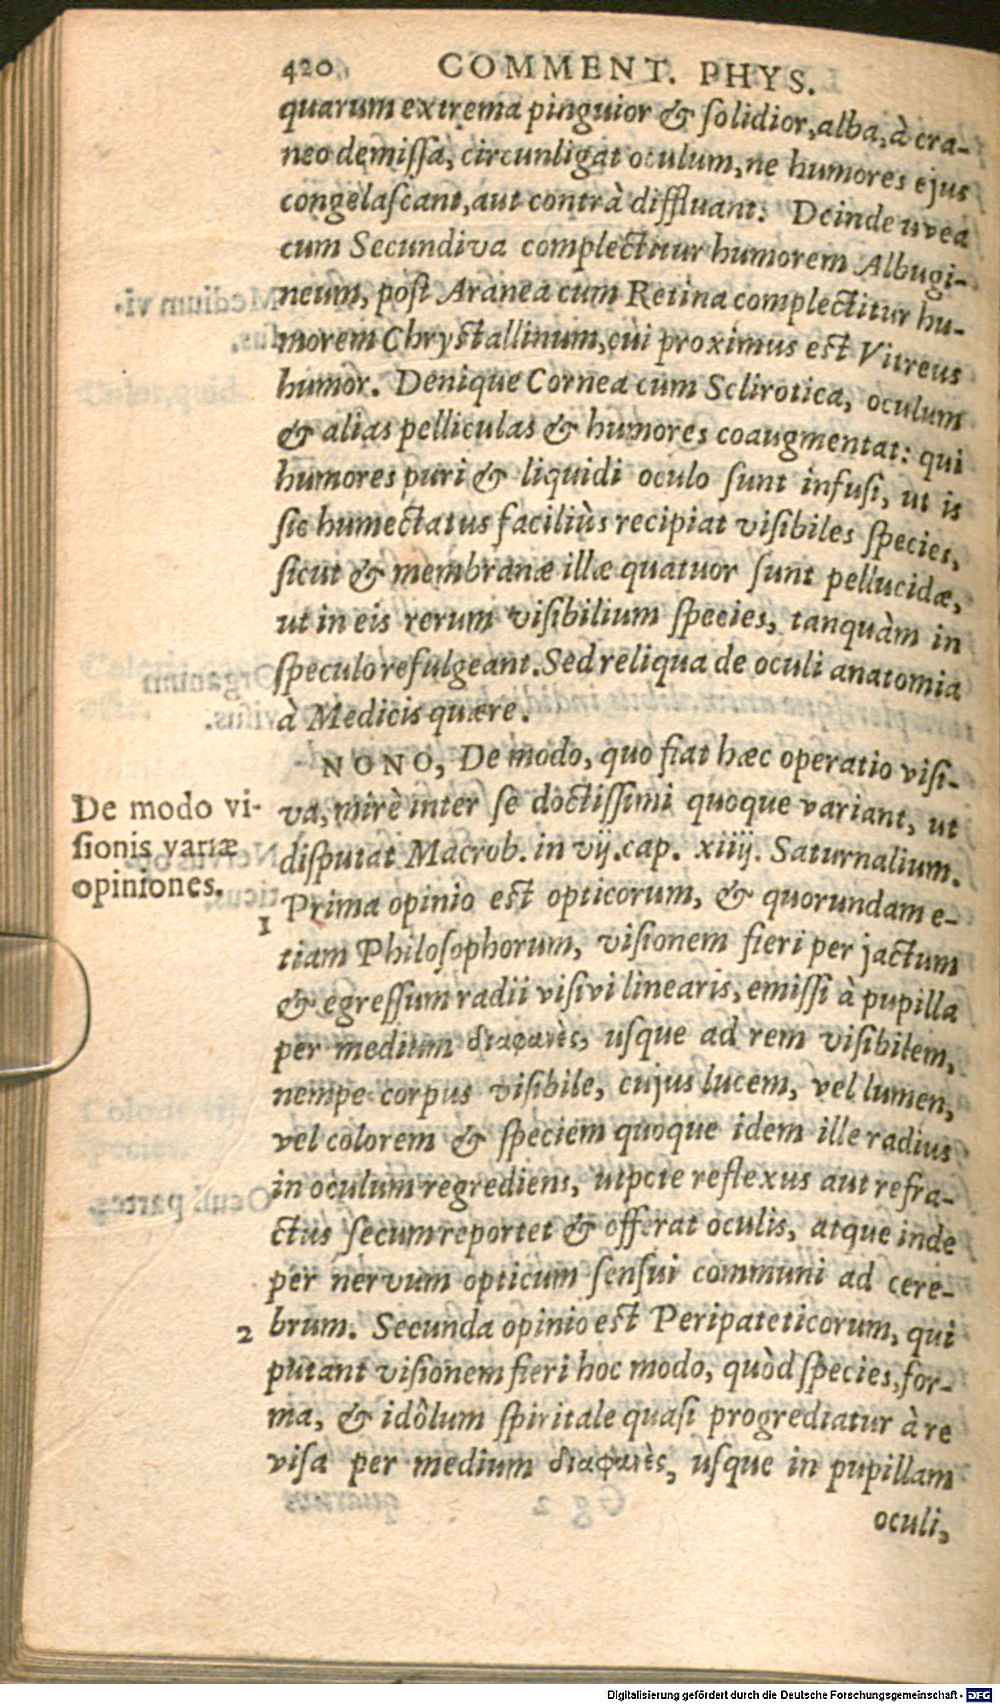 420 COMMENT. PHYS.
quarum extrema pinguior & solidior, alba, à cra-
neo demissa, circunligat oculum, ne humores ejus
congelascant, aut contrà diffluant. Deinde uvea
cum Secundiva complectitur humorem Albugi-
neum, post Aranea cum Retina complectitur hu-
morem Chrystallinum, cui proximus est Vitreus
humor. Denique Cornea cum Sclirotica, oculum
& alias pelliculas & humores coaugmentat: qui
humores puri & liquidi oculo sunt infusi, ut is
sic humectatus faciliùs recipiat visibiles species,
sicut & membranæ illæ quatuor sunt pellucidæ,
ut in eis rerum visibilium species, tanquàm in
speculo refulgeant. Sed reliqua de oculi anatomia
à Medicis quære.
NONO, De modo, quo fiat hæc operatio visi-
va, mirè inter se doctissimi quoque variant, ut
disputat Macrob. in vij. cap. xiiij. Saturnalium.
Prima opinio est opticorum, & quorundam e-
tiam Philosophorum, visionem fieri per jactum
& egressum radii visivi linearis, emissi à pupilla
per medium διαφανὲς, usque ad rem visibilem,
nempe corpus visibile, cujus lucem, vel lumen,
vel colorem & speciem quoque idem ille radius
in oculum regrediens, utpote reflexus aut refra-
ctus secum reportet & offerat oculis, atque inde
per nervum opticum sensui communi ad cere-
brum. Secunda opinio est Peripateticorum, qui
putant visionem fieri hoc modo, quòd species, for-
ma, & idôlum spiritale quasi progrediatur à re
visa per medium διαφανὲς, usque in pupillam
oculi,
De modo vi-
sionis variæ
opiniones.
1
2
Digitalisierung gefördert durch die Deutsche Forschungsgemeinschaft - DFG